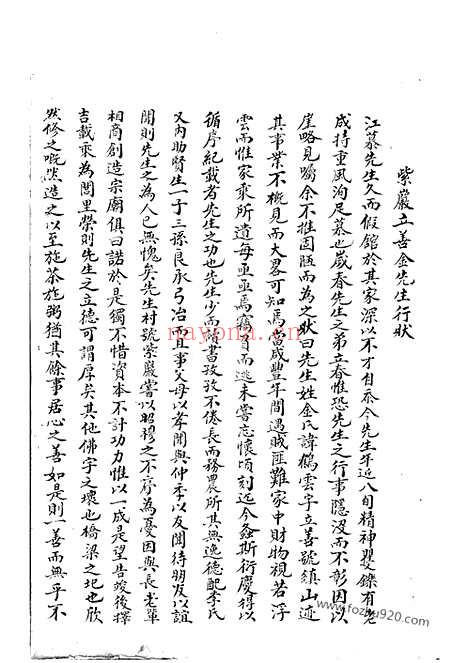 紫巖立善金先生行狀
江慕先生久而假館於其家深以不才自忝今先生年近八旬精神矍鑠有老
成持重風洵足慕也歲春先生之弟立春惟恐先生之行事隱沒而不彰因以
崖略見囑余不推固陋而為之狀曰先生姓金氏諱鶴雲字立善號鎮山迹
其事業不概見而大畧可知焉當咸豐年間遇賊匪難家中財物視若浮
雲而惟家乘所遺每亟亟焉負而逃未嘗忘懷頃刻迄今螽斯衍慶得以
循序紀載者先生之功也先生少而書孜孜不倦長而務農所其無逸德配李氏
又內助賢生一子三孫良承弓冶而且事父母以孝聞與仲季以友聞待朋友以誼
聞則先生之為人已無愧矣先生村號紫巖嘗以昭穆之不序為憂因與長老輩
相商創造宗廟俱曰諾於是獨不惜資本不計功力惟以一成是望告竣後擇
吉載乘為閭里榮則先生之立德可謂厚矣其他佛宇之壞也橋梁之圮也欣
然修之嘅然造之以至施茶施粥猶其餘事居心之善如是則一善而無乎不
nayona.cn
www.fozhu920.com